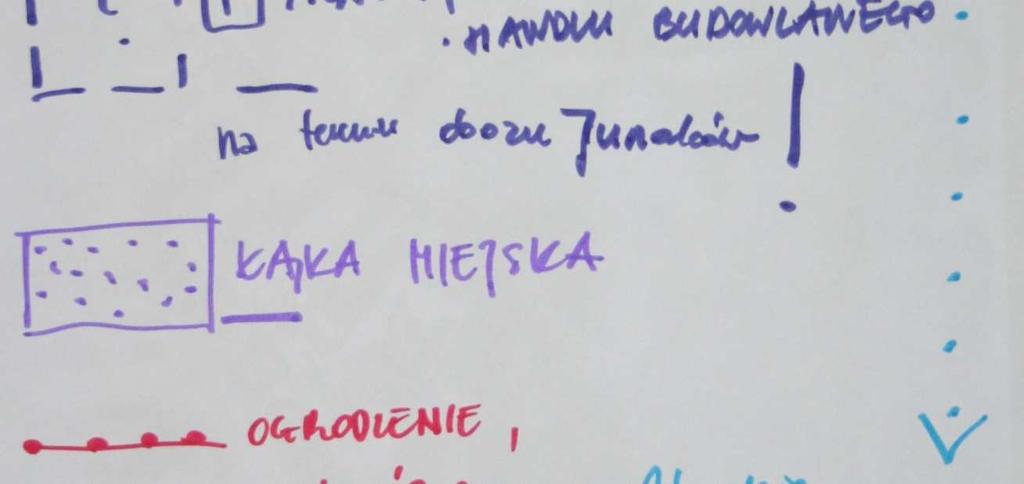 · HANDLU BUDOWLANEGO
na terenie obozu Junaków !
ŁĄKA MIEJSKA
OGRODZENIE,